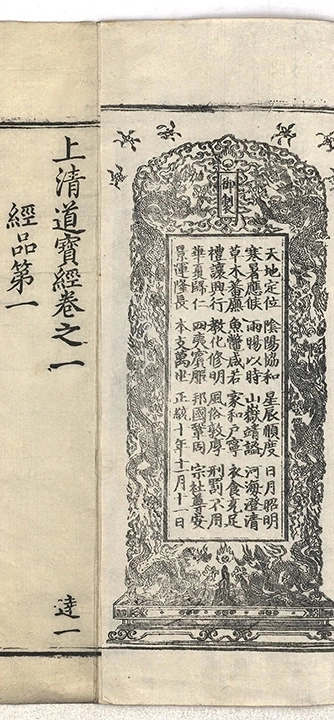 御製
天地定位 陰陽協和 星辰順度 日月昭明
寒暑應候 雨暘以時 山嶽靖謐 河海澄清
草木蕃廡 魚鱉咸若 家和戶寧 衣食充足
禮讓興行 教化修明 風俗敦厚 刑罰不用
華夏歸仁 四夷賓服 邦國鞏固 宗社尊安
景運隆長 本支萬世 正統十年十一月十一日
上清道寶經卷之一
達一
經品第一